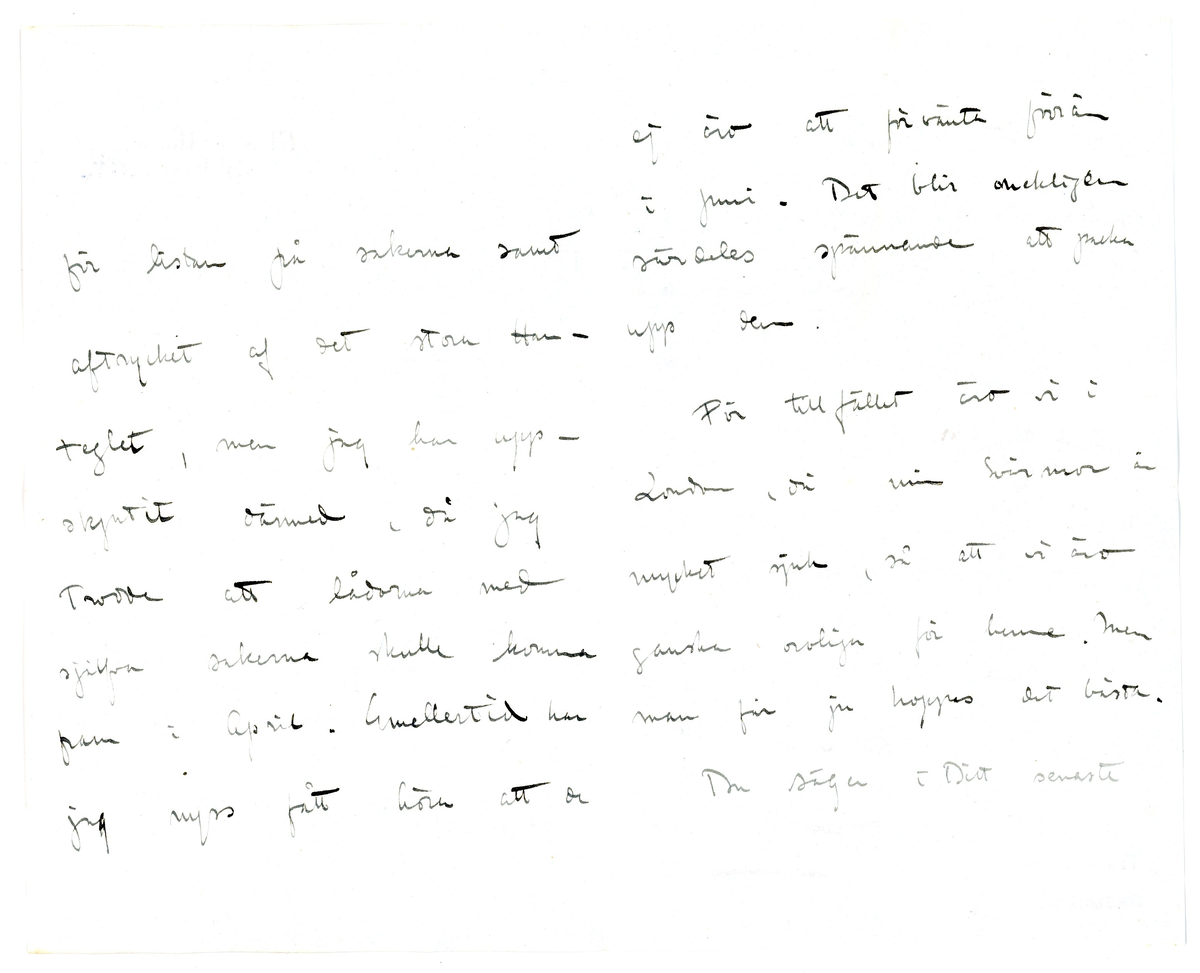 för listan på sakerna samt
aftrycket af det stora Han-
teglet, men jag har upp-
skjutit därmed, då jag
trodde att lådorna med
sjelfva sakerna skulle komma
fram i April. Emellertid har
jag nyss fått höra att de
ej äro att förvänta förrän
i juni. Det blir onekligen
särdeles spännande att packa
upp dem.
För tillfället äro vi i
London, då min Svärmor är
mycket sjuk, så att vi äro
ganska oroliga för henne. Men
man får ju hoppas det bästa.
Du säger i Ditt senaste